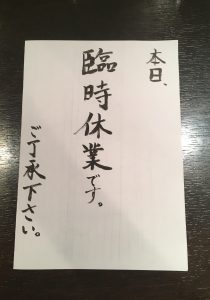 本日、
臨時休業です。
ご了承下さい。